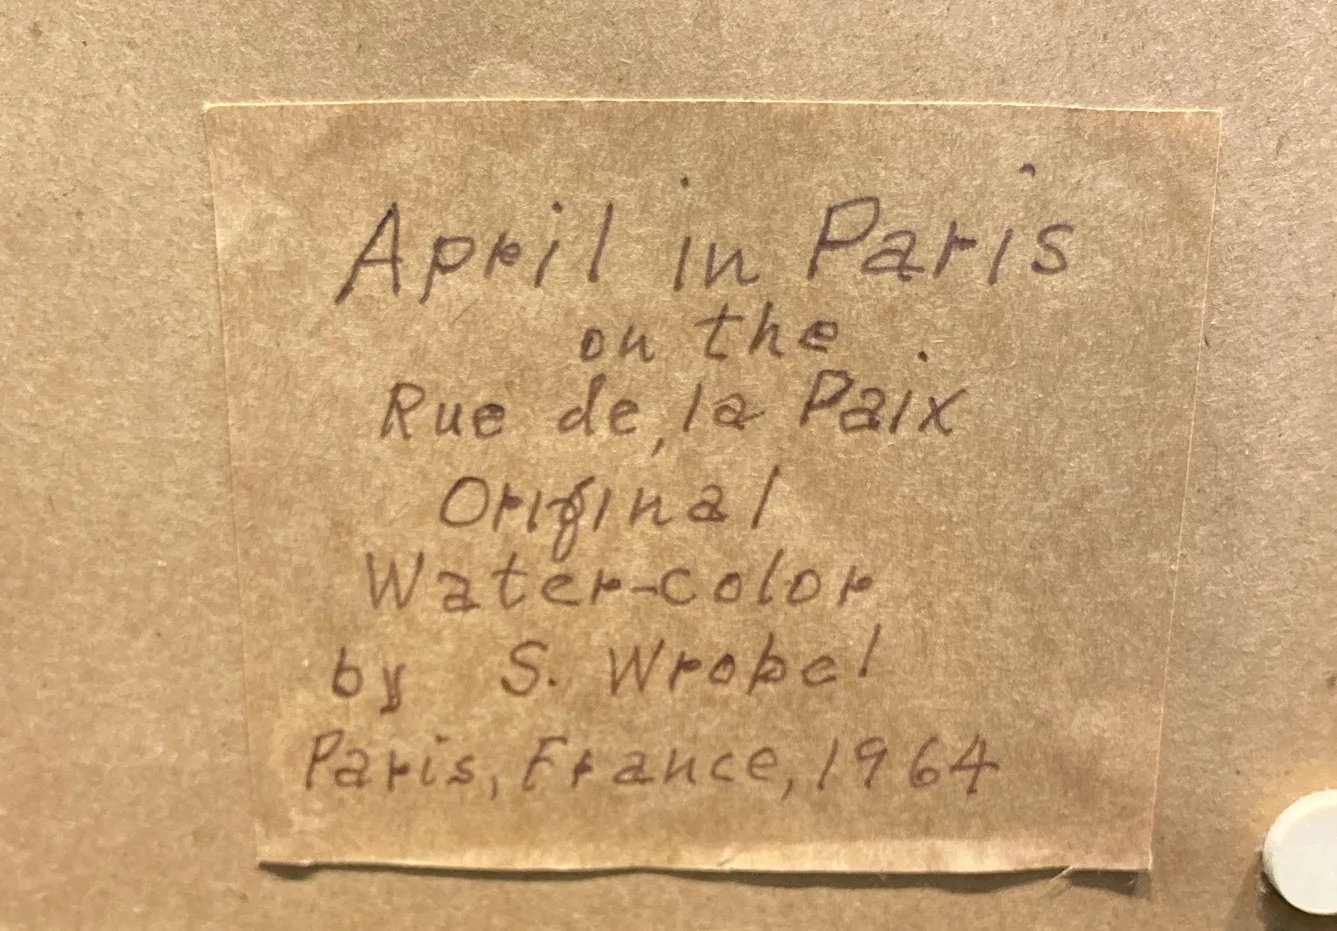 April in Paris
on the
Rue de, la Paix
Original
Water-color
by S. Wrobel
Paris, France, 1964